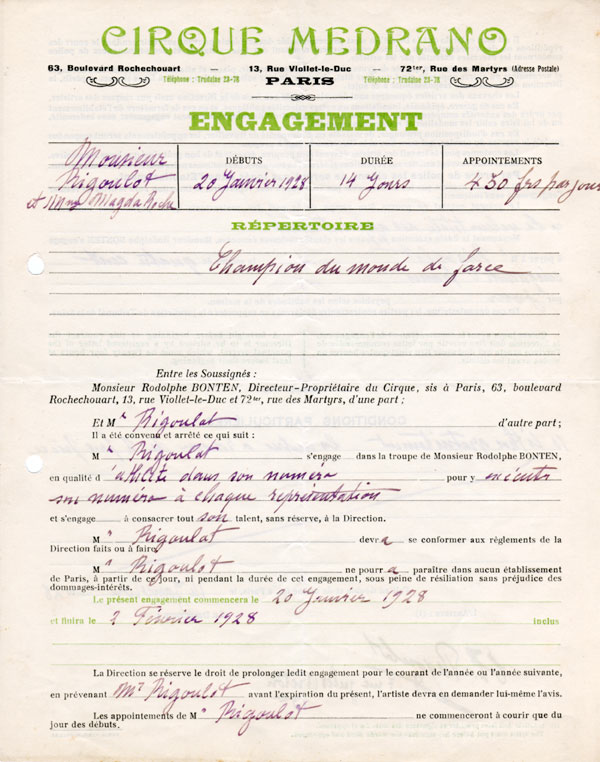 CIRQUE MEDRANO
63, Boulevard Rochechouart — 13, Rue Viollet-le-Duc — 72ter, Rue des Martyrs (Adresse Postale)
Téléphone : Trudaine 23-78 PARIS Téléphone : Trudaine 23-78
ENGAGEMENT
Monsieur Rigoulot et Mme Magda Roche
DÉBUTS
20 Janvier 1928
DURÉE
14 Jours
APPOINTEMENTS
450 frs par jour
RÉPERTOIRE
Champion du monde de force
Entre les Soussignés :
Monsieur Rodolphe BONTEN, Directeur-Propriétaire du Cirque, sis à Paris, 63, boulevard
Rochechouart, 13, rue Viollet-le-Duc et 72ter, rue des Martyrs, d'une part ;
Et Mr Rigoulot d'autre part ;
Il a été convenu et arrêté ce qui suit :
M r Rigoulot s'engage dans la troupe de Monsieur Rodolphe BONTEN,
en qualité d'athlète dans son numéro pour y exécuter
son numéro à chaque représentation
et s'engage à consacrer tout son talent, sans réserve, à la Direction.
M r Rigoulot devra se conformer aux règlements de la
Direction faits ou à faire.
M r Rigoulot ne pourra paraître dans aucun établissement
de Paris, à partir de ce jour, ni pendant la durée de cet engagement, sous peine de résiliation sans préjudice des
dommages-intérêts.
Le présent engagement commencera le 20 Janvier 1928
et finira le 2 Février 1928 inclus
La Direction se réserve le droit de prolonger ledit engagement pour le courant de l'année ou l'année suivante,
en prévenant Mr Rigoulot avant l'expiration du présent, l'artiste devra en demander lui-même l'avis.
Les appointements de M r Rigoulot ne commenceront à courir que du
jour des débuts.